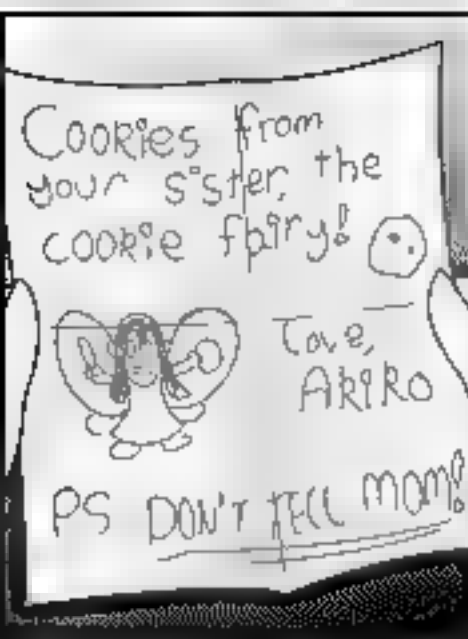 Cookies from
your sister, the
cookie fairy!
Love,
AKIKO
PS DON'T TELL MOM!